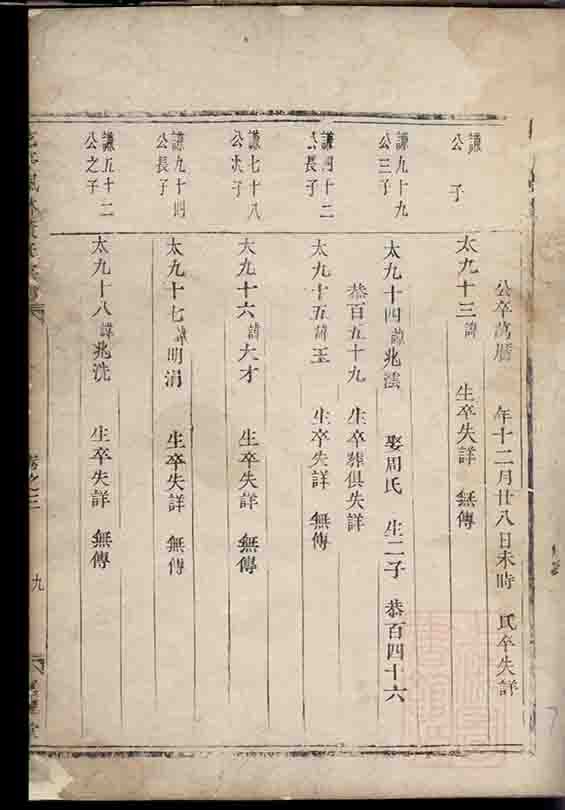 公卒萬曆 年十二月廿八日未時 氏卒失詳
謙
公 子
太九十三諱 生卒失詳 無傳
謙九十九
公三子
太九十四諱兆澐 娶周氏 生二子 恭百四十六
恭百五十九 生卒葬俱失詳
謙四十二
公長子
太九十五諱玉 生卒失詳 無傳
謙七十八
公次子
太九十六諱大才 生卒失詳 無傳
謙九十四
公長子
太九十七諱明涓 生卒失詳 無傳
謙五十二
公之子
太九十八諱兆洗 生卒失詳 無傳
卷之三
九